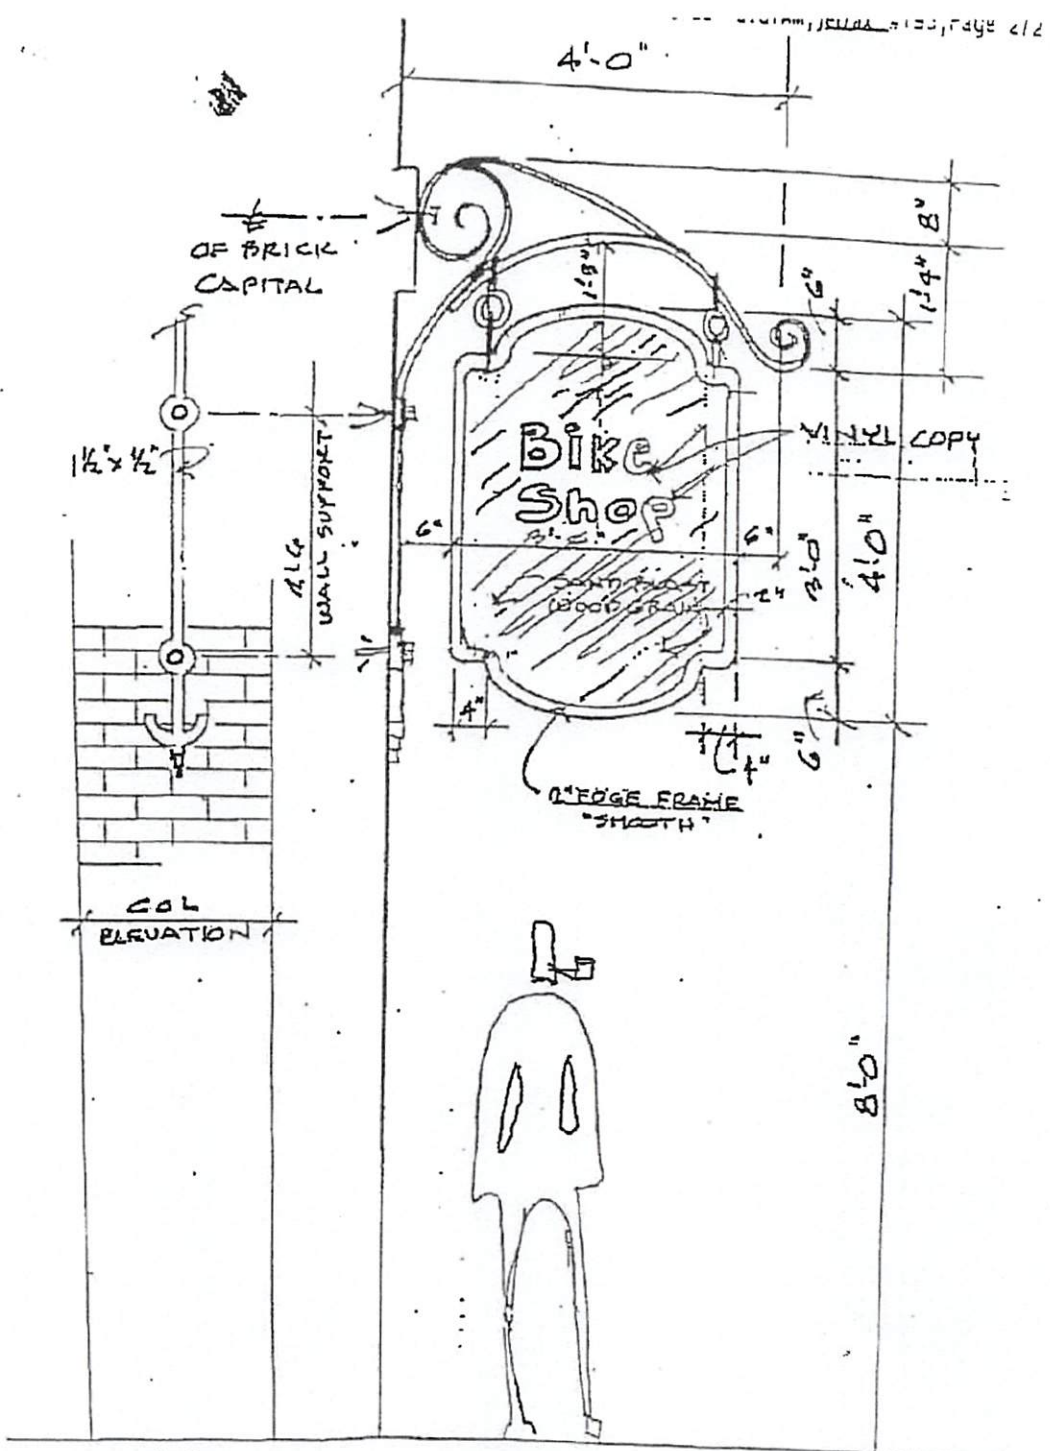 Page 2/2
4'-0"
8"
OF BRICK
CAPITAL
1'-8"
6"
1'-4"
1½" x ½"
WALL SUPPORT
Bike
Shop
VINYL COPY
6"
6"
3'-0"
4'-0"
SAND BLAST
WOOD GRAIN
2"
4"
4"
6"
2" EDGE FRAME
"SMOOTH"
COL
ELEVATION
8'-0"